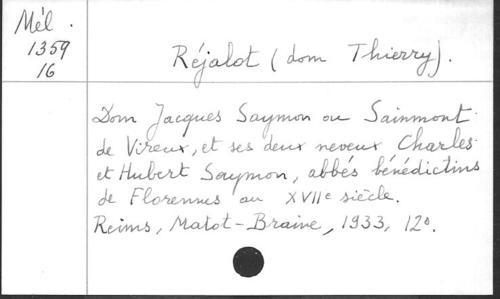 Mél.
1359
16
Réjalot (dom Thierry).
Dom Jacques Saymon ou Sainmont
de Vireux, et ses deux neveux Charles
et Hubert Saymon, abbés bénédictins
de Florennes au XVIIe siècle.
Reims, Matot-Braine, 1933, 12o.